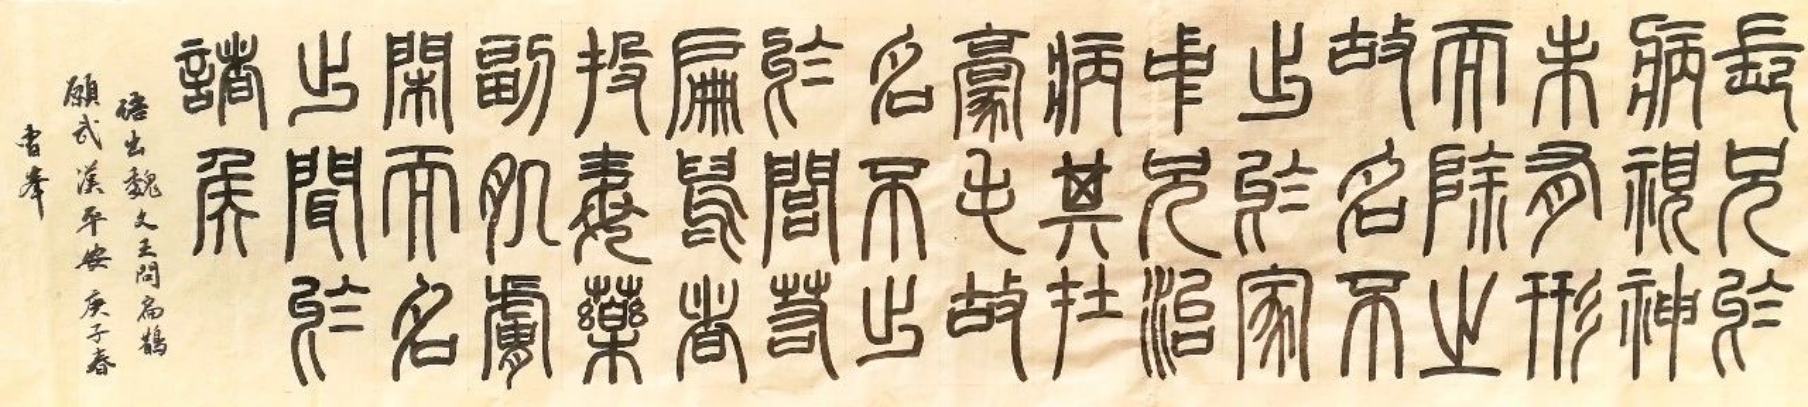 長兄於
病視神
未有形
而除之
故名不
出於家
中兄治
病其在
豪毛故
名不出
於閭若
扁鵲者
投毒藥
副肌膚
閑而名
出聞於
諸侯
語出魏文王問扁鵲
願武漢平安 庚子春